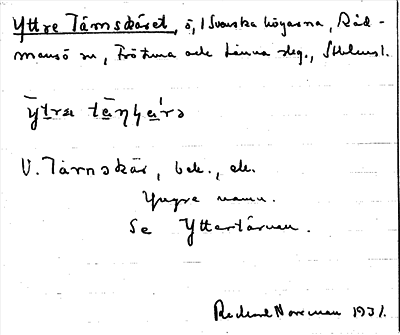 Yttre Tärnskäret, ö, i Svenska högarna, Råd-
mansö sn, Frötuna och Länna slg., Sthlms l.
V. Tärnskär, bek., ek.
Yngre namn.
Se Yttertärnan.
Rickard Norrman 1931.